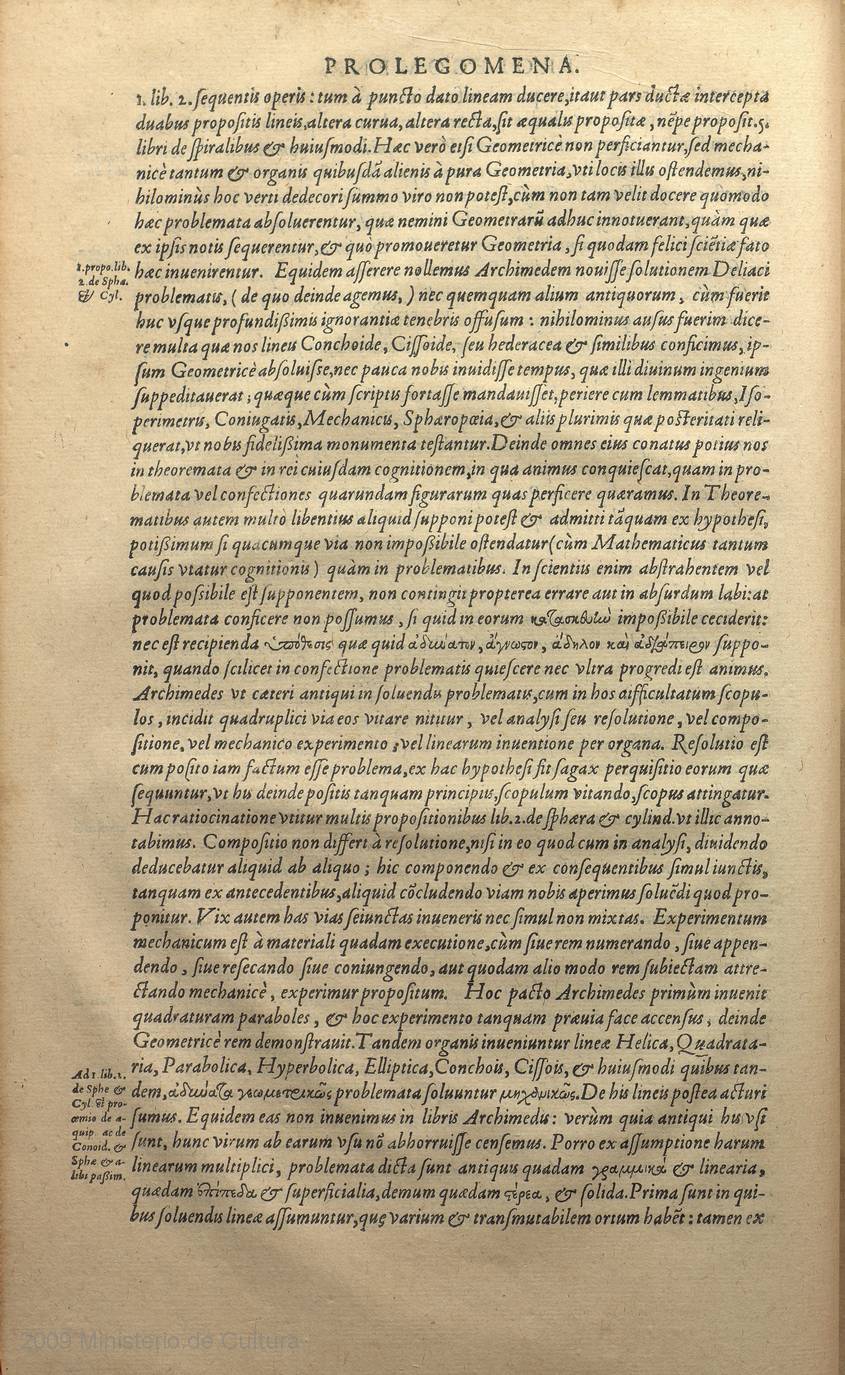 PROLEGOMENA.
1. lib. 2. ſequentis operis : tum à puncto dato lineam ducere, itaut pars ductæ intercepta
duabus propoſitis lineis, altera curua, altera recta, ſit æqualis propoſitæ, nẽpe propoſit. 5.
libri de ſpiralibus & huiuſmodi. Hæc verò etſi Geometricè non perficiantur, ſed mecha-
nicè tantum & organis quibuſdã alienis à pura Geometria, vti locis illis oſtendemus, ni-
hilominùs hoc verti dedecori ſummo viro non poteſt, cùm non tam velit docere quomodo
hæc problemata abſoluerentur, quæ nemini Geometrarũ adhuc innotuerant, quàm quæ
ex ipſis notis ſequerentur, & quò promoueretur Geometria, ſi quodam felici ſciẽtiæ fato
hæc inuenirentur. Equidem aſſerere nollemus Archimedem nouiſſe ſolutionem Deliaci
1. propo. lib.
2. de Sphæ.
& Cyl.
problematis, ( de quo deinde agemus, ) nec quemquam alium antiquorum, cùm fuerit
huc vſque profundiſsimis ignorantiæ tenebris offuſum : nihilominus auſus fuerim dice-
re multa quæ nos lineis Conchoide, Ciſſoide, ſeu hederacea & ſimilibus conficimus, ip-
ſum Geometricè abſoluiſſe, nec pauca nobis inuidiſſe tempus, quæ illi diuinum ingenium
ſuppeditauerat ; quæque cùm ſcriptis fortaſſe mandauiſſet, periere cum lemmatibus, Iſo-
perimetris, Coniugatis, Mechanicis, Sphæropœia, & aliis plurimis quæ poſteritati reli-
querat, vt nobis fideliſsima monumenta teſtantur. Deinde omnes eius conatus potius nos
in theoremata & in rei cuiuſdam cognitionem, in qua animus conquieſcat, quam in pro-
blemata vel confectiones quarundam figurarum quas perficere quæramus. In Theore-
matibus autem multò libentius aliquid ſupponi poteſt & admitti tãquam ex hypotheſi,
potiſsimum ſi quacumque via non impoſsibile oſtendatur (cùm Mathematicus tantum
cauſis vtatur cognitionis) quàm in problematibus. In ſcientiis enim abſtrahentem vel
quod poſsibile eſt ſupponentem, non contingit propterea errare aut in abſurdum labi: at
problemata conficere non poſſumus, ſi quid in eorum κατασκϐυὼ impoſsibile ceciderit:
nec eſt recipienda ὑπόθεσις quæ quid ἀδυύατον, ἄγνωςον, ἄδηλον καὶ ſuppo-
nit, quando ſcilicet in confectione problematis quieſcere nec vltra progredi eſt animus.
Archimedes vt cæteri antiqui in ſoluendis problematis, cum in hos difficultatum ſcopu-
los, incidit quadruplici via eos vitare nititur, vel analyſi ſeu reſolutione, vel compo-
ſitione, vel mechanico experimento, vel linearum inuentione per organa. Reſolutio eſt
cum poſito iam factum eſſe problema, ex hac hypotheſi fit ſagax perquiſitio eorum quæ
ſequuntur, vt his deinde poſitis tanquam principiis, ſcopulum vitando, ſcopus attingatur.
Hac ratiocinatione vtitur multis propoſitionibus lib. 2. de ſphæra & cylind. vt illic anno-
tabimus. Compoſitio non differt à reſolutione, niſi in eo quod cum in analyſi, diuidendo
deducebatur aliquid ab aliquo ; hic componendo & ex conſequentibus ſimul iunctis,
tanquam ex antecedentibus, aliquid cõcludendo viam nobis aperimus ſoluẽdi quod pro-
ponitur. Vix autem has vias ſeiunctas inueneris nec ſimul non mixtas. Experimentum
mechanicum eſt à materiali quadam executione, cùm ſiue rem numerando, ſiue appen-
dendo, ſiue reſecando ſiue coniungendo, aut quodam alio modo rem ſubiectam attre-
ctando mechanicè, experimur propoſitum. Hoc pacto Archimedes primùm inuenit
quadraturam paraboles, & hoc experimento tanquam præuia face accenſus, deinde
Geometricè rem demonſtrauit. Tandem organis inueniuntur lineæ Helica, Quadrata-
ria, Parabolica, Hyperbolica, Elliptica, Conchois, Ciſſois, & huiuſmodi quibus tan-
Ad 1. lib. 1.
de Sphę &
Cyl. & pro-
œmio de a-
quip. ac de
Conoid. &
Sphæ & a-
libi paſsim.
dem, ἀδυύατα γεωμετρικῶς problemata ſoluuntur μηχανικῶς. De his lineis poſtea acturi
ſumus. Equidem eas non inuenimus in libris Archimedis : verùm quia antiqui his vſi
ſunt, hunc virum ab earum vſu nõ abhorruiſſe cenſemus. Porro ex aſſumptione harum
linearum multiplici, problemata dicta ſunt antiquis quædam γραμμικά & linearia,
quædam ἐπίπεδα & ſuperficialia, demum quædam ςέρεα, & ſolida. Prima ſunt in qui-
bus ſoluendis lineæ aſſumuntur, quę varium & tranſmutabilem ortum habẽt : tamen ex
2009 Ministerio de Cultura